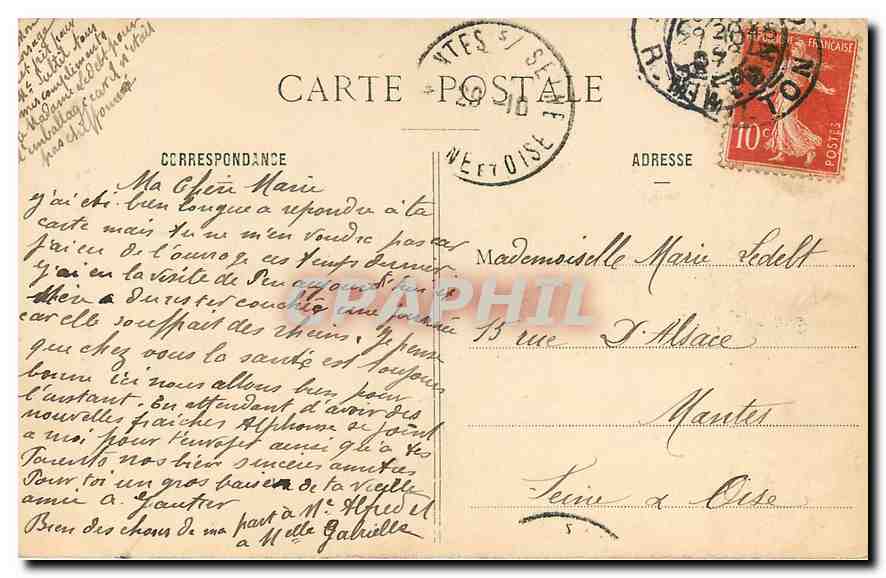 CARTE POSTALE
CORRESPONDANCE
Ma Chère Marie
j'ai été bien longue a repondre à ta
carte mais tu ne m'en voudra pas car
j'ai eu de l'ouvrage ces temps dernier
j'ai eu la visite de aujourd'hui
mère a du rester couchée une journée
car elle souffrait des reins. Je pense
que chez vous la santé est toujours
bonne ici nous allons bien pour
l'instant. En attendant d'avoir des
nouvelles fraiches Alphonse se joint
a moi pour t'envoyer ainsi qu'a tes
Parents nos bien sincères amitiés
Pour toi un gros baiser de ta vieille
amie A. Gautier
Bien des choses de ma part à Mr Alfred et
a Melle Gabrielle
mes compliments
a Madame Ledebt pour
l'emballage car il n'était
pas chiffonner
MANTES S/ SEINE
28-10
SEINE ET OISE
REPUBLIQUE FRANÇAISE
10c
POSTES
ADRESSE
Mademoiselle Marie Ledebt
13 rue D'Alsace
Mantes
Seine & Oise
CPAPHIL